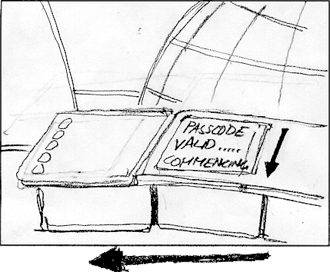 PASSCODE
VALID.....
COMMENCING..